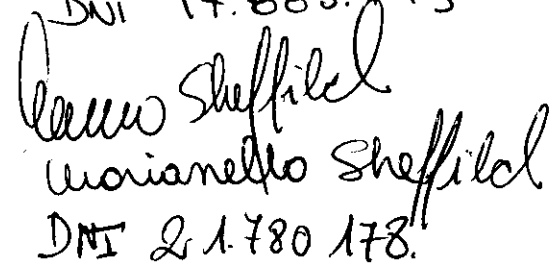 DNI 17.
Sheffild
Marianella Sheffild
DNI 21.780 178.